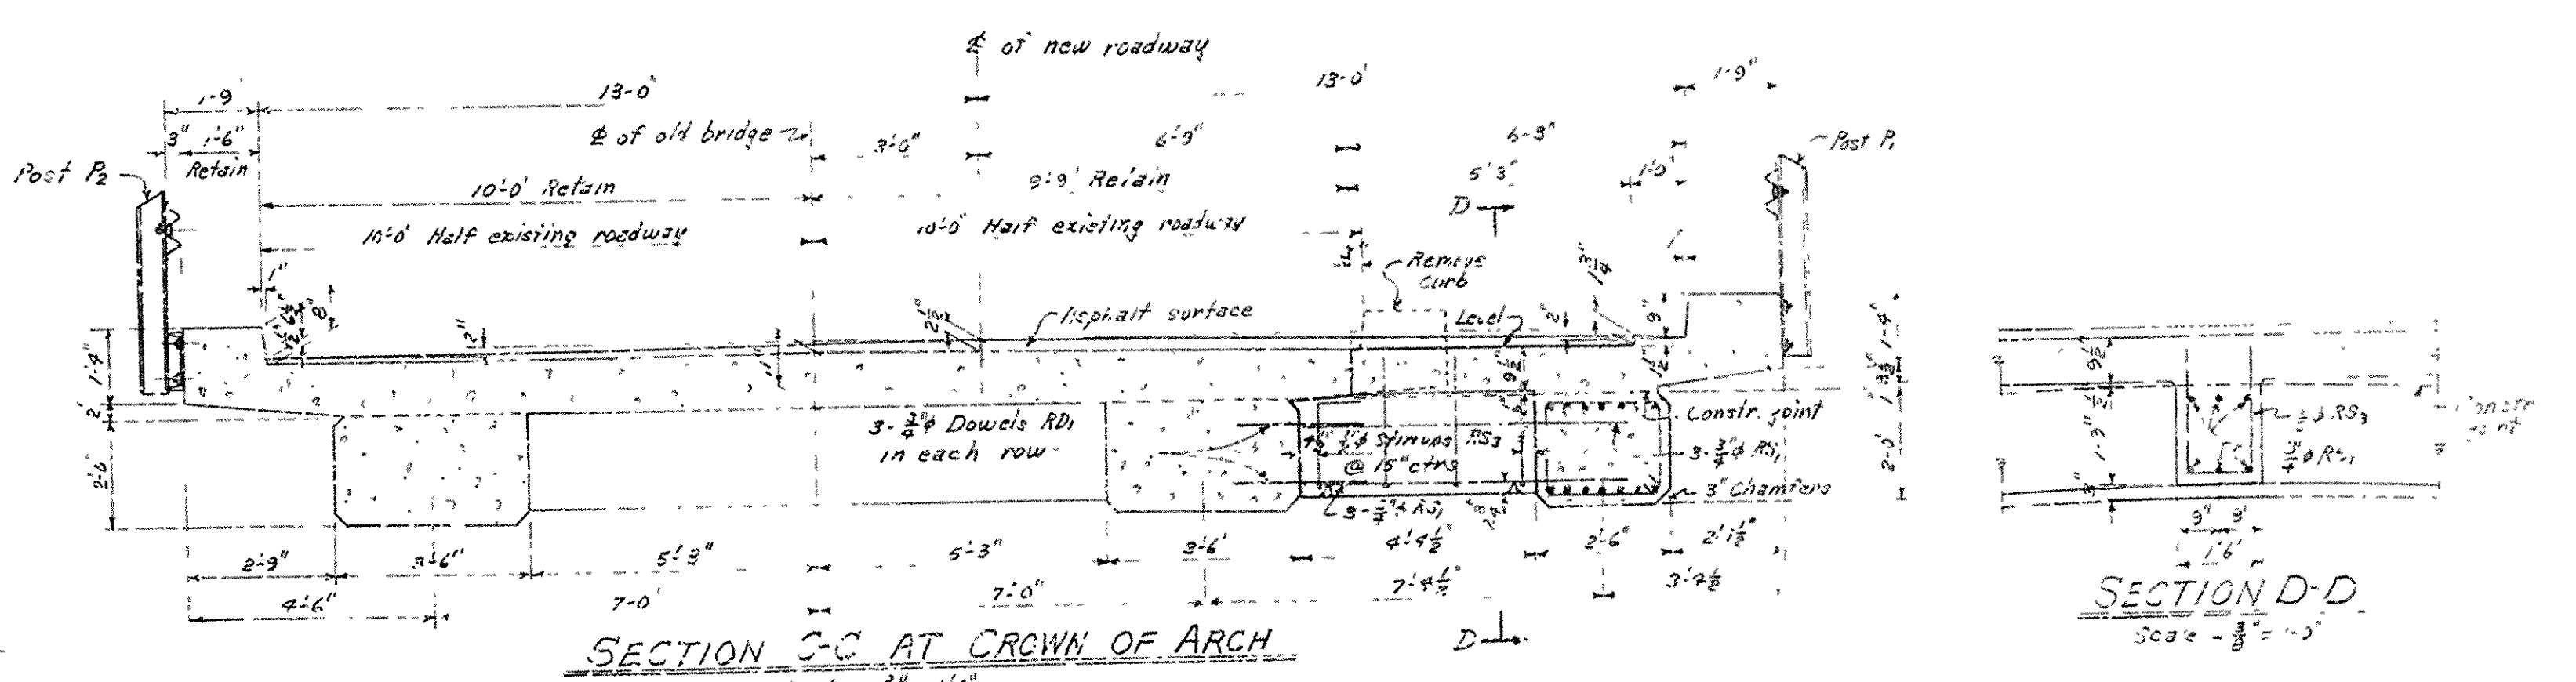 ₵ of new roadway
1-9
13-0"
13-0'
1-9"
3"
1'-6"
Retain
₵ of old bridge
3'-0"
6'-9"
6-9"
Post P2
Post P1
10'-0" Retain
9'-9" Retain
5'3"
1'-0"
D
10'-0" Half existing roadway
10'-0" Half existing roadway
1"
8"
Remove
curb
1 3/4"
Asphalt surface
Level
2"
2 1/2"
2"
9"
1'-4"
11"
9 1/2"
1 1/2"
1'-4"
2"
2'-6"
3-3/4"φ Dowels RD1
in each row
1/2"φ Stirrups RS3
@ 15" ctrs
3-3/4"φ RS1
Constr. joint
3-3/4"φ RS1
3" Chamfers
2'-0"
2'-9"
3'-6"
5'-3"
5'-3"
3'-6"
4'-4 1/2"
2'-6"
2'-1 1/2"
4'-6"
7'-0"
7'-0"
7'-4 1/2"
SECTION C-C AT CROWN OF ARCH
D
9 1/2"
1'-9"
3"
1/2 φ RS3
3/4"φ RS1
Constr
9" 9"
1'6"
SECTION D-D
Scale - 3/8" = 1'-0"